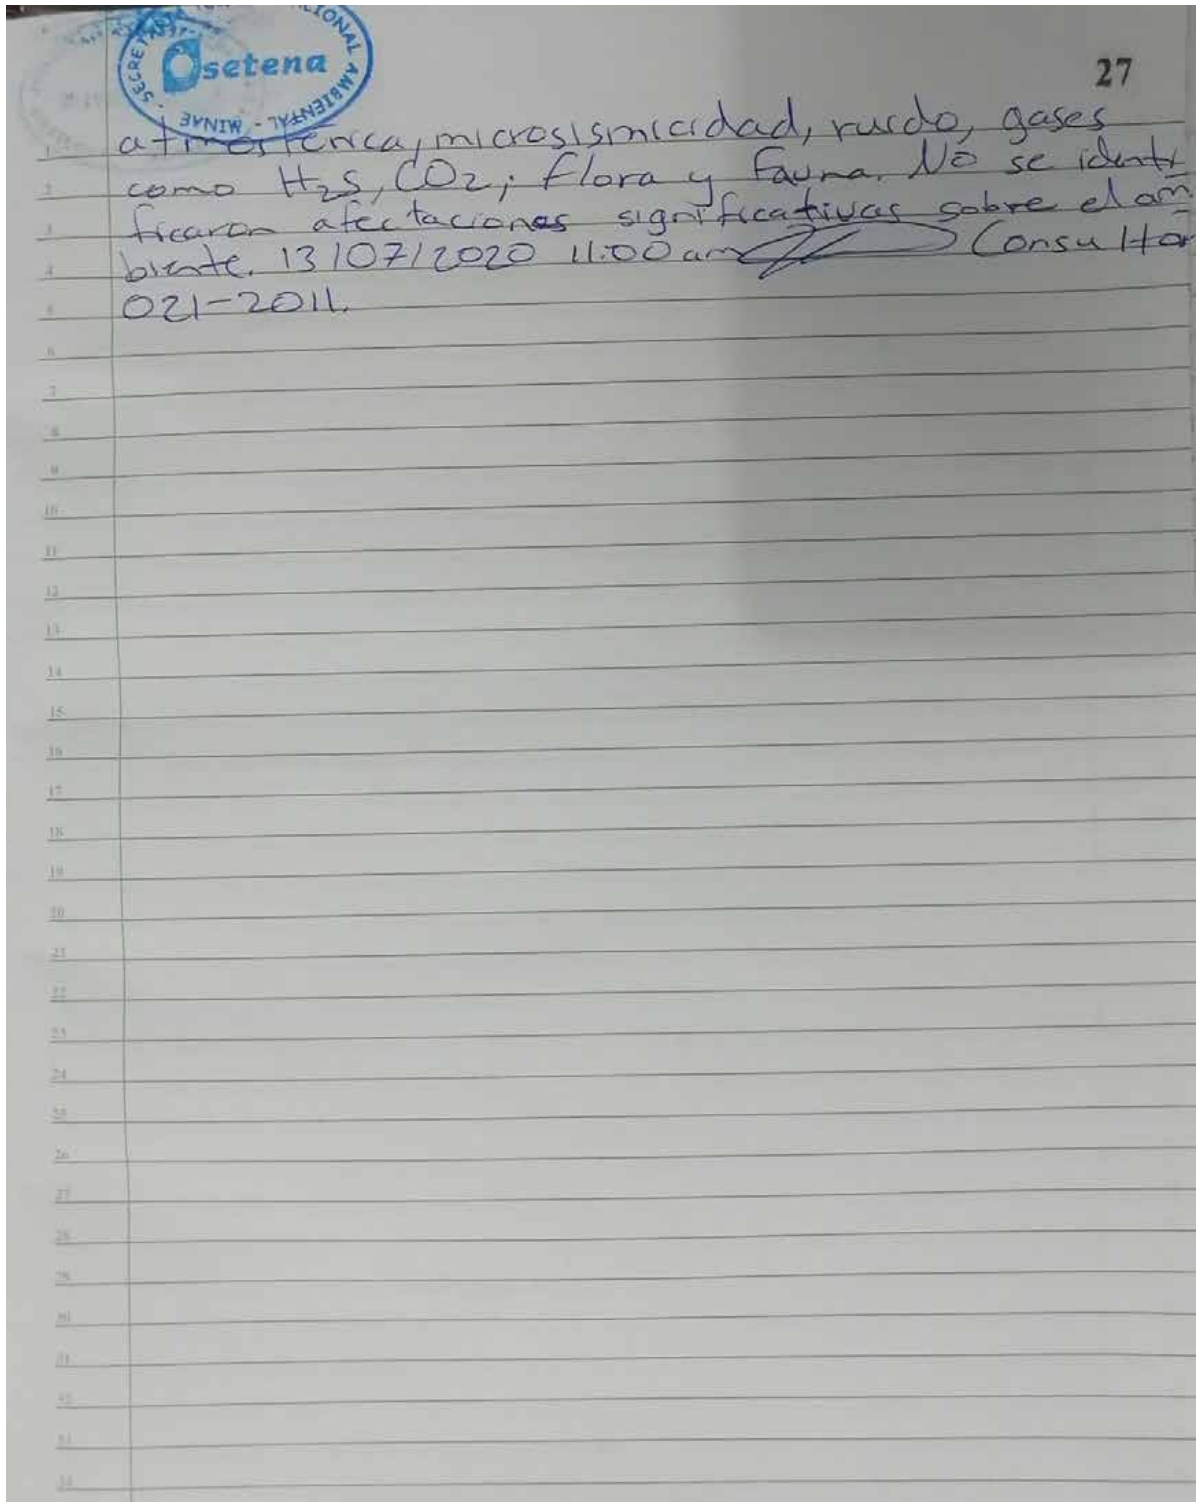 SECRETARÍA
CIONAL AMBIENTAL - MINAE
setena
27
1 atmosférica, microsismicidad, ruido, gases
2 como H2S, CO2; flora y Fauna. No se identi
3 ficaron afectaciones significativas sobre el am
4 biente. 13/07/2020 11:00 am Consultor
5 021-2011.
6
7
8
9
10
11
12
13
14
15
16
17
18
19
20
21
22
23
24
25
26
27
28
29
30
31
32
33
34